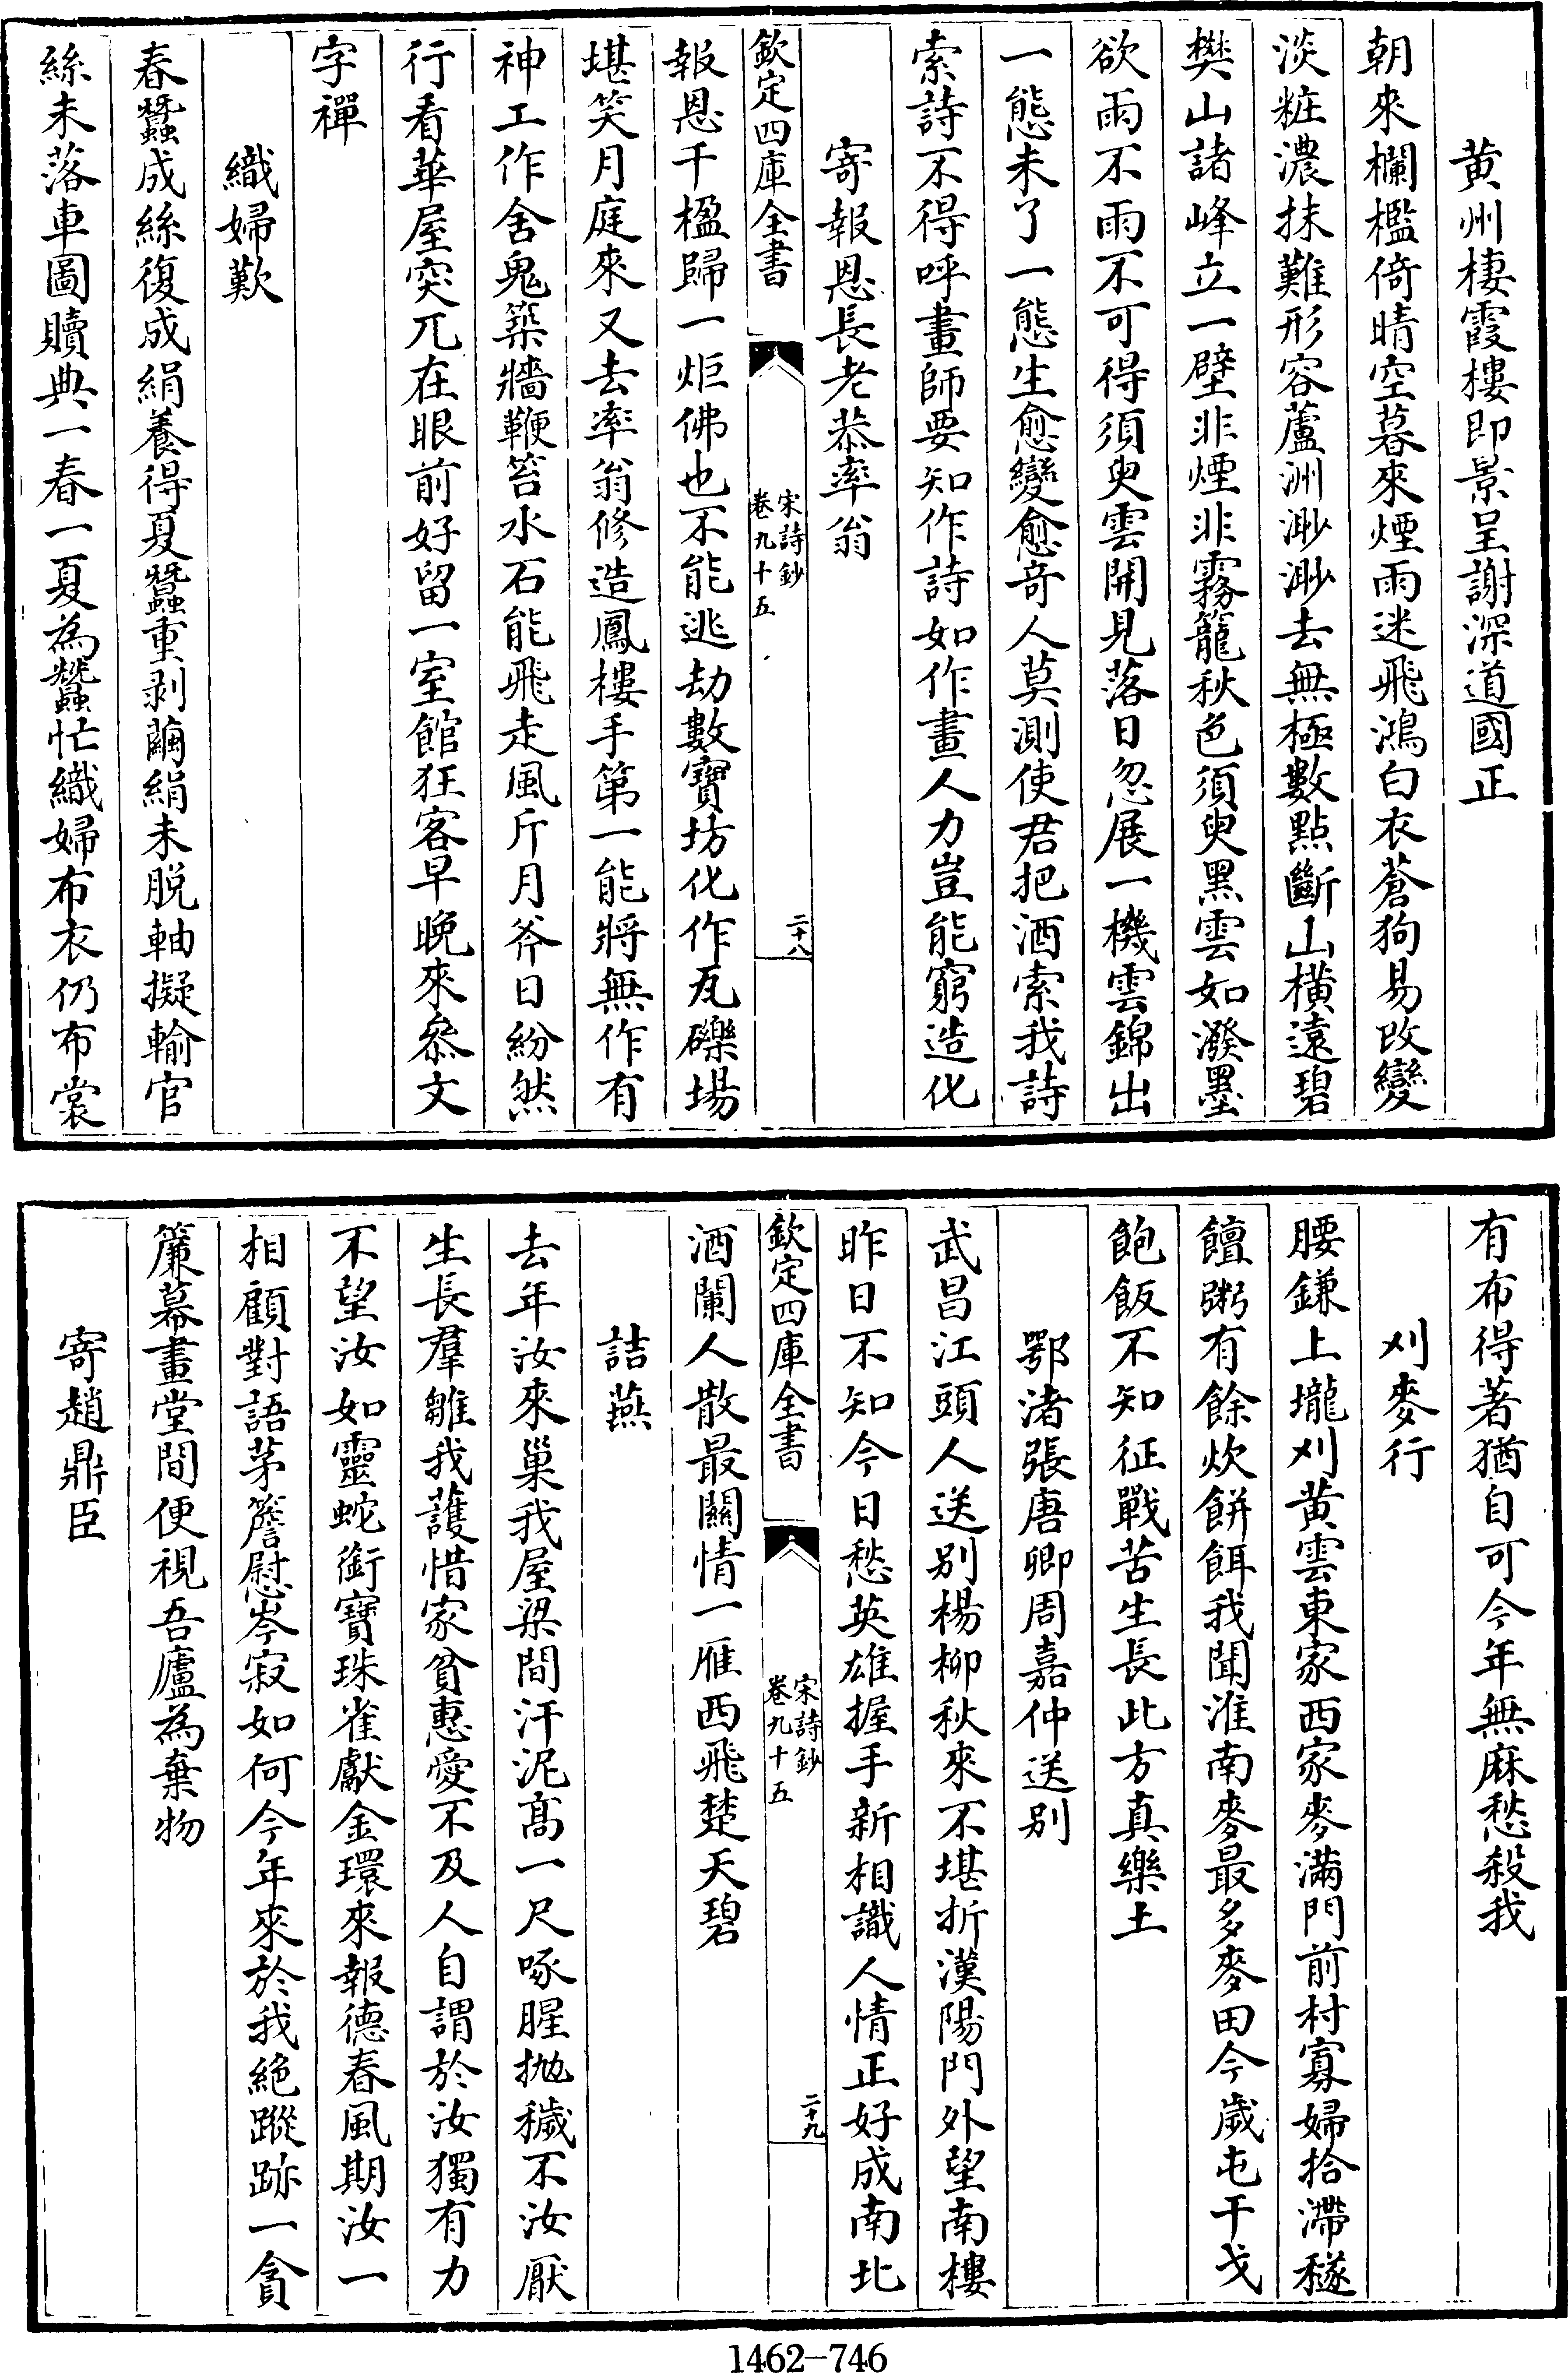 黄州棲霞樓即景呈謝深道國正
朝來欄檻倚晴空暮來煙雨迷飛鴻白衣蒼狗易改變
淡粧濃抹難形容蘆洲渺渺去無極數點斷山橫遠碧
樊山諸峰立一壁非煙非霧籠秋色須臾黑雲如潑墨
欲雨不雨不可得須臾雲開見落日忽展一機雲錦出
一態未了一態生愈變愈奇人莫測使君把酒索我詩
索詩不得呼畫師要知作詩如作畫人力豈能窮造化
寄報恩長老恭率翁
欽定四庫全書
宋詩鈔
卷九十五
二十八
報恩千楹歸一炬佛也不能逃劫數寶坊化作瓦礫場
堪笑月庭來又去率翁修造鳳樓手第一能將無作有
神工作舍鬼築牆鞭笞水石能飛走風斤月斧日紛然
行看華屋突兀在眼前好留一室館狂客早晚來叅文
字禪
織婦歎
春蠶成絲復成絹養得夏蠶重剥繭絹未脱軸擬輸官
絲未落車圖贖典一春一夏為蠶忙織婦布衣仍布裳
有布得著猶自可今年無麻愁殺我
刈麥行
腰鎌上壠刈黄雲東家西家麥滿門前村寡婦拾滯穟
饘粥有餘炊餅餌我聞淮南麥最多麥田今歲屯干戈
飽飯不知征戰苦生長此方真樂土
鄂渚張唐卿周嘉仲送别
武昌江頭人送别楊柳秋來不堪折漢陽門外望南樓
昨日不知今日愁英雄握手新相識人情正好成南北
欽定四庫全書
宋詩鈔
卷九十五
二十九
酒闌人散最關情一雁西飛楚天碧
詰燕
去年汝來巢我屋梁間汗泥髙一尺啄腥抛穢不汝厭
生長羣雛我護惜家貧惠愛不及人自謂於汝獨有力
不望汝如靈蛇銜寶珠雀獻金環來報德春風期汝一
相顧對語茅簷慰岑寂如何今年來於我絶蹤跡一貪
簾幕畫堂間便視吾廬為棄物
寄趙鼎臣
1462-746